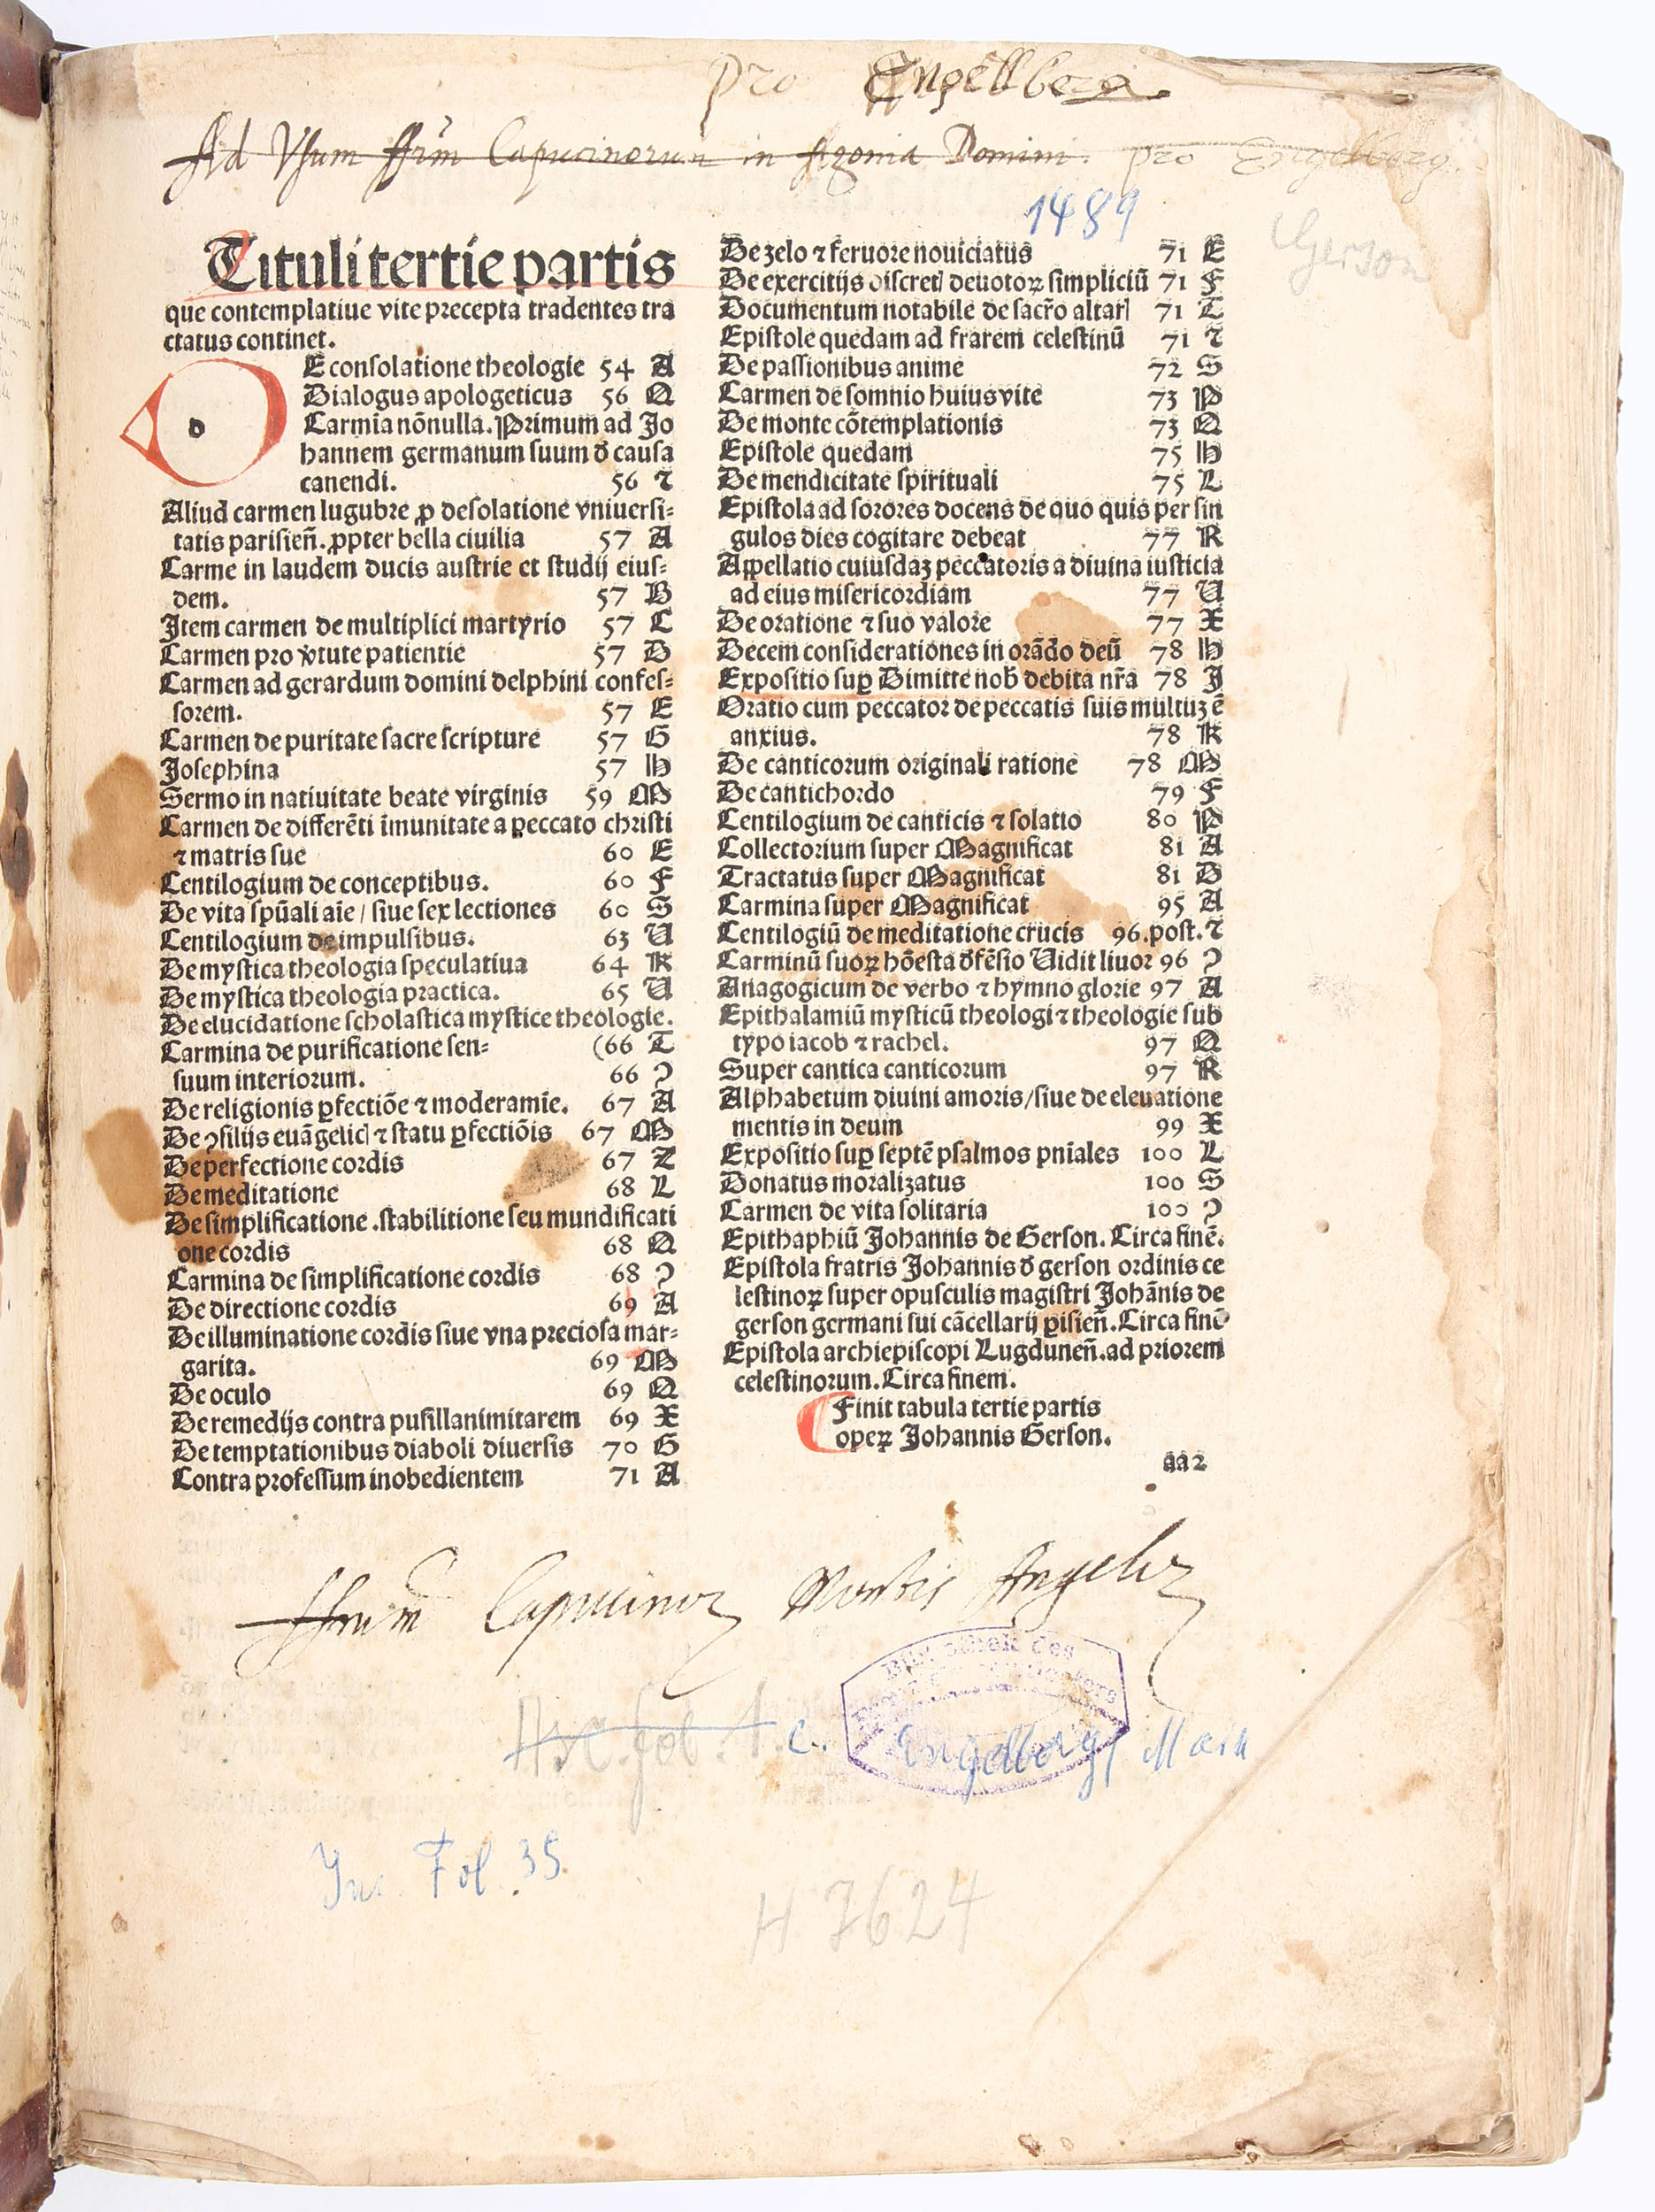 pro Engellberg
Ad Vsum ffrm̄ Capucinorum in Agonia Domini. pro Engelberg.
1489
Gerson
Tituli tertie partis
que contemplatiue vite precepta tradentes tra
ctatus continet.
DE consolatione theologie 54 A
Dialogus apologeticus 56 Q
Carmīa nōnulla. Primum ad Jo
hannem germanum suum ꝺ̄ causa
canendi. 56 ⁊
Aliud carmen lugubre ꝓ desolatione vniuersi⸗
tatis parisien̄. ꝓpter bella ciuilia 57 A
Carme in laudem ducis austrie et studij eius⸗
dem. 57 B
Item carmen de multiplici martyrio 57 C
Carmen pro v̄tute patientie 57 D
Carmen ad gerardum domini delphini confes⸗
sorem. 57 E
Carmen de puritate sacre scripture 57 G
Josephina 57 H
Sermo in natiuitate beate virginis 59 M
Carmen de differēti īmunitate a peccato christi
⁊ matris sue 60 E
Centilogium de conceptibus. 60 F
De vita spūali aīe / siue sex lectiones 60 S
Centilogium de impulsibus. 63 U
De mystica theologia speculatiua 64 K
De mystica theologia practica. 65 U
De elucidatione scholastica mystice theologie.
Carmina de purificatione sen⸗ (66 T
suum interiorum. 66 ꝯ
De religionis ꝑfectiōe ⁊ moderamīe. 67 A
De ꝯsilijs euāgelicꝭ ⁊ statu ꝑfectiōis 67 M
De perfectione cordis 67 Z
De meditatione 68 L
De simplificatione .stabilitione seu mundificati
one cordis 68 Q
Carmina de simplificatione cordis 68 ꝯ
De directione cordis 69 A
De illuminatione cordis siue vna preciosa mar⸗
garita. 69 M
De oculo 69 Q
De remedijs contra pusillanimitarem 69 X
De temptationibus diaboli diuersis 70 G
Contra professum inobedientem 71 A
De zelo ⁊ feruore nouiciatus 71 E
De exercitijs discretꝭ deuotoꝝ simpliciū 71 F
Documentum notabile de sacr̄o altarꝭ 71 T
Epistole quedam ad frarem celestinū 71 ⁊
De passionibus anime 72 S
Carmen de somnio huius vite 73 P
De monte cōtemplationis 73 Q
Epistole quedam 75 H
De mendicitate spirituali 75 L
Epistola ad sorores docens de quo quis per sin
gulos dies cogitare debeat 77 R
Appellatio cuiusdaꝫ peccatoris a diuina iusticia
ad eius misericordiam 77 U
De oratione ⁊ suo valore 77 X
Decem considerationes in orādo deū 78 H
Expositio suꝑ Dimitte nob̄ debita nr̄a 78 I
Oratio cum peccator de peccatis suis multuꝫ ē
anxius. 78 K
De canticorum originali ratione 78 M
De cantichordo 79 F
Centilogium de canticis ⁊ solatio 80 P
Collectorium super Magnificat 81 A
Tractatus super Magnificat 81 D
Carmina super Magnificat 95 A
Centilogiū de meditatione crucis 96.post.⁊
Carminū suoꝝ hōesta ꝺ̄fēsio Uidit liuor 96 ꝯ
Anagogicum de verbo ⁊ hymno glorie 97 A
Epithalamiū mysticū theologi ⁊ theologie sub
typo iacob ⁊ rachel. 97 Q
Super cantica canticorum 97 R
Alphabetum diuini amoris / siue de eleuatione
mentis in deum 99 X
Expositio suꝑ septē psalmos pnīales 100 L
Donatus moralizatus 100 S
Carmen de vita solitaria 100 ꝯ
Epithaphiū Johannis de Gerson. Circa finē.
Epistola fratris Johannis ꝺ̄ gerson ordinis ce
lestinoꝝ super opusculis magistri Johānis de
gerson germani sui cācellarij ꝑisien̄. Circa finē
Epistola archiepiscopi Lugdunen̄. ad priorem
celestinorum. Circa finem.
Finit tabula tertie partis
opeꝝ Johannis Gerson.
aa 2
ffrum̄ Capucinoꝝ Montis Angeloꝝ
Bibliothek des
Engelberg/Main
Asc. fol. 1. c.
Inc. Fol. 35
H 7624